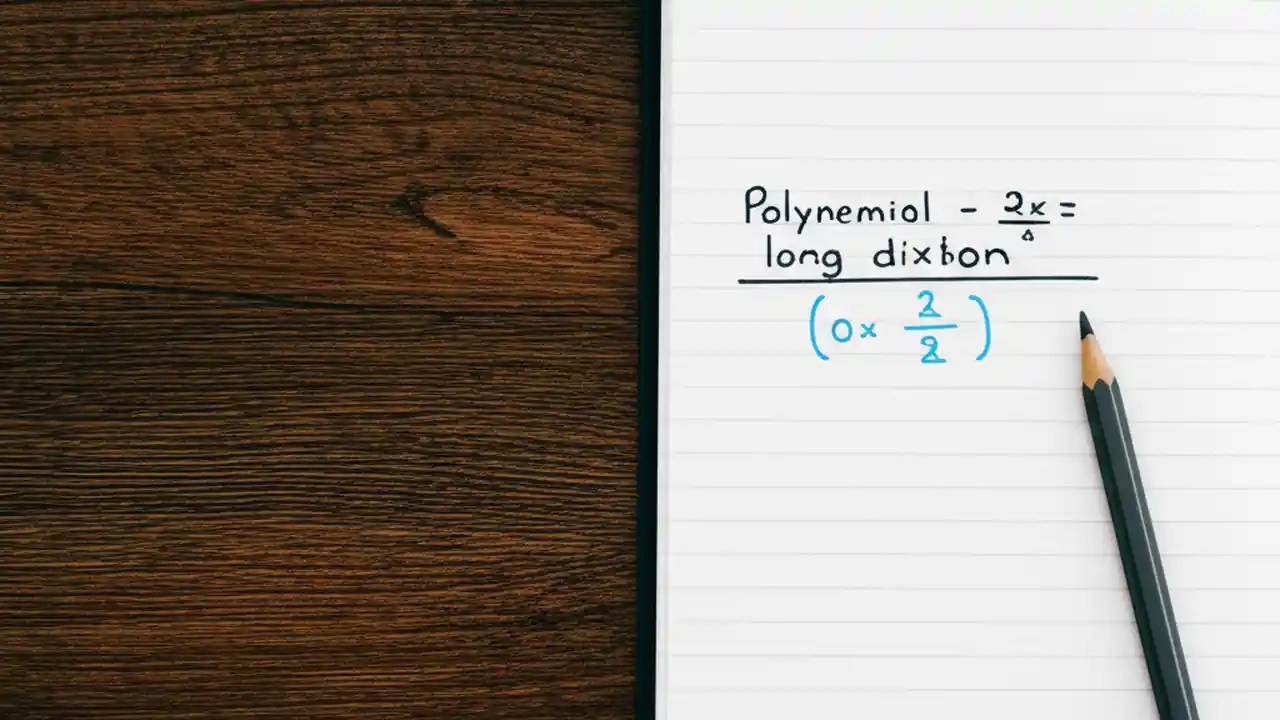 Polynemiol - 2x =
long dixbon Δ
(0x 2/2)